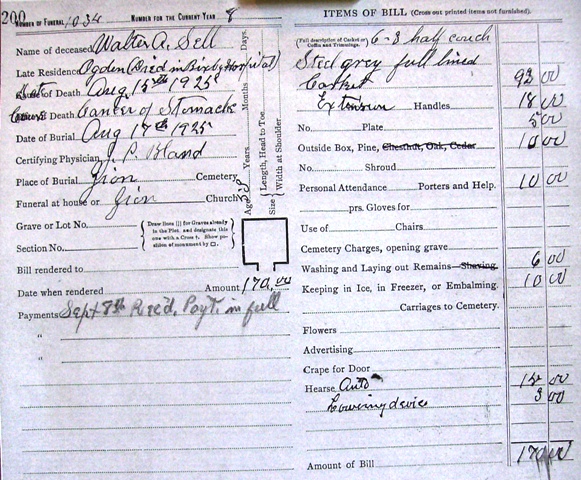 200
NUMBER OF FUNERAL 1034 NUMBER FOR THE CURRENT YEAR 8
Name of deceased Walter A. Sell
Late Residence Ogden (Died in Bixby Hospital)
Date of Death Aug 15th 1925
Cause of Death Cancer of Stomach
Date of Burial Aug 17th 1925
Certifying Physician J. P. Bland
Place of Burial Zion Cemetery
Funeral at house or Zion Church
Grave or Lot No.
Section No.
Draw lines () for Graves already
in the Plot, and designate this
one with a Cross †. Show po-
sition of monument by □.
Age Years Months Days.
Size Length, Head to Toe
Width at Shoulder
Bill rendered to
Date when rendered Amount 170.00
Payments Sept 8th Rec'd, Payt. in full
"
"
ITEMS OF BILL (Cross out printed items not furnished).
(Full description of Casket or
Coffin and Trimmings. 6-3 half couch
Steel grey full lined
Casket 92 00
Extension Handles 18 00
No. Plate 5 00
Outside Box, Pine, Chestnut, Oak, Cedar 10 00
No. Shroud
Personal Attendance Porters and Help. 10 00
prs. Gloves for
Use of Chairs
Cemetery Charges, opening grave
Washing and Laying out Remains Shaving. 6 00
Keeping in Ice, in Freezer, or Embalming. 10 00
Carriages to Cemetery.
Flowers
Advertising
Crape for Door
Hearse Auto 00
Lowering device 3 00
Amount of Bill